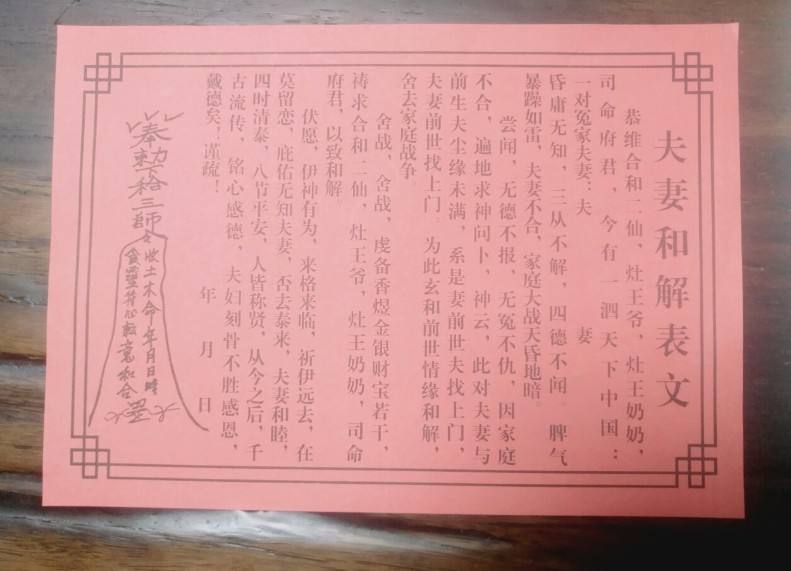 夫妻和解表文
恭维合和二仙，灶王爷，灶王奶奶，
司命府君，今有一泗天下中国：
一对冤家夫妻：夫　　妻
昏庸无知，三从不解，四德不闻　脾气
暴躁如雷，夫妻不合，家庭大战天昏地暗。
尝闻，无德不报，无冤不仇，因家庭
不合，遍地求神问卜，神云，此对夫妻与
前生夫尘缘未满，系是妻前世夫找上门，
夫妻前世找上门　为此玄和前世情缘和解，
舍去家庭战争
舍战，舍战，虔备香煜金银财宝若干，
祷求合和二仙，灶王爷，灶王奶奶，司命
府君，以致和解
伏愿，伊神有为，来格来临，祈伊远去，在
莫留恋，庇佑无知夫妻，否去泰来，夫妻和睦，
四时清泰，八节平安，人皆称贤，从今之后，千
古流传，铭心感德，夫妇刻骨不胜感恩，
戴德矣！谨疏！
年　月　日
奉勅
三師
收土木命　年月日時
和合